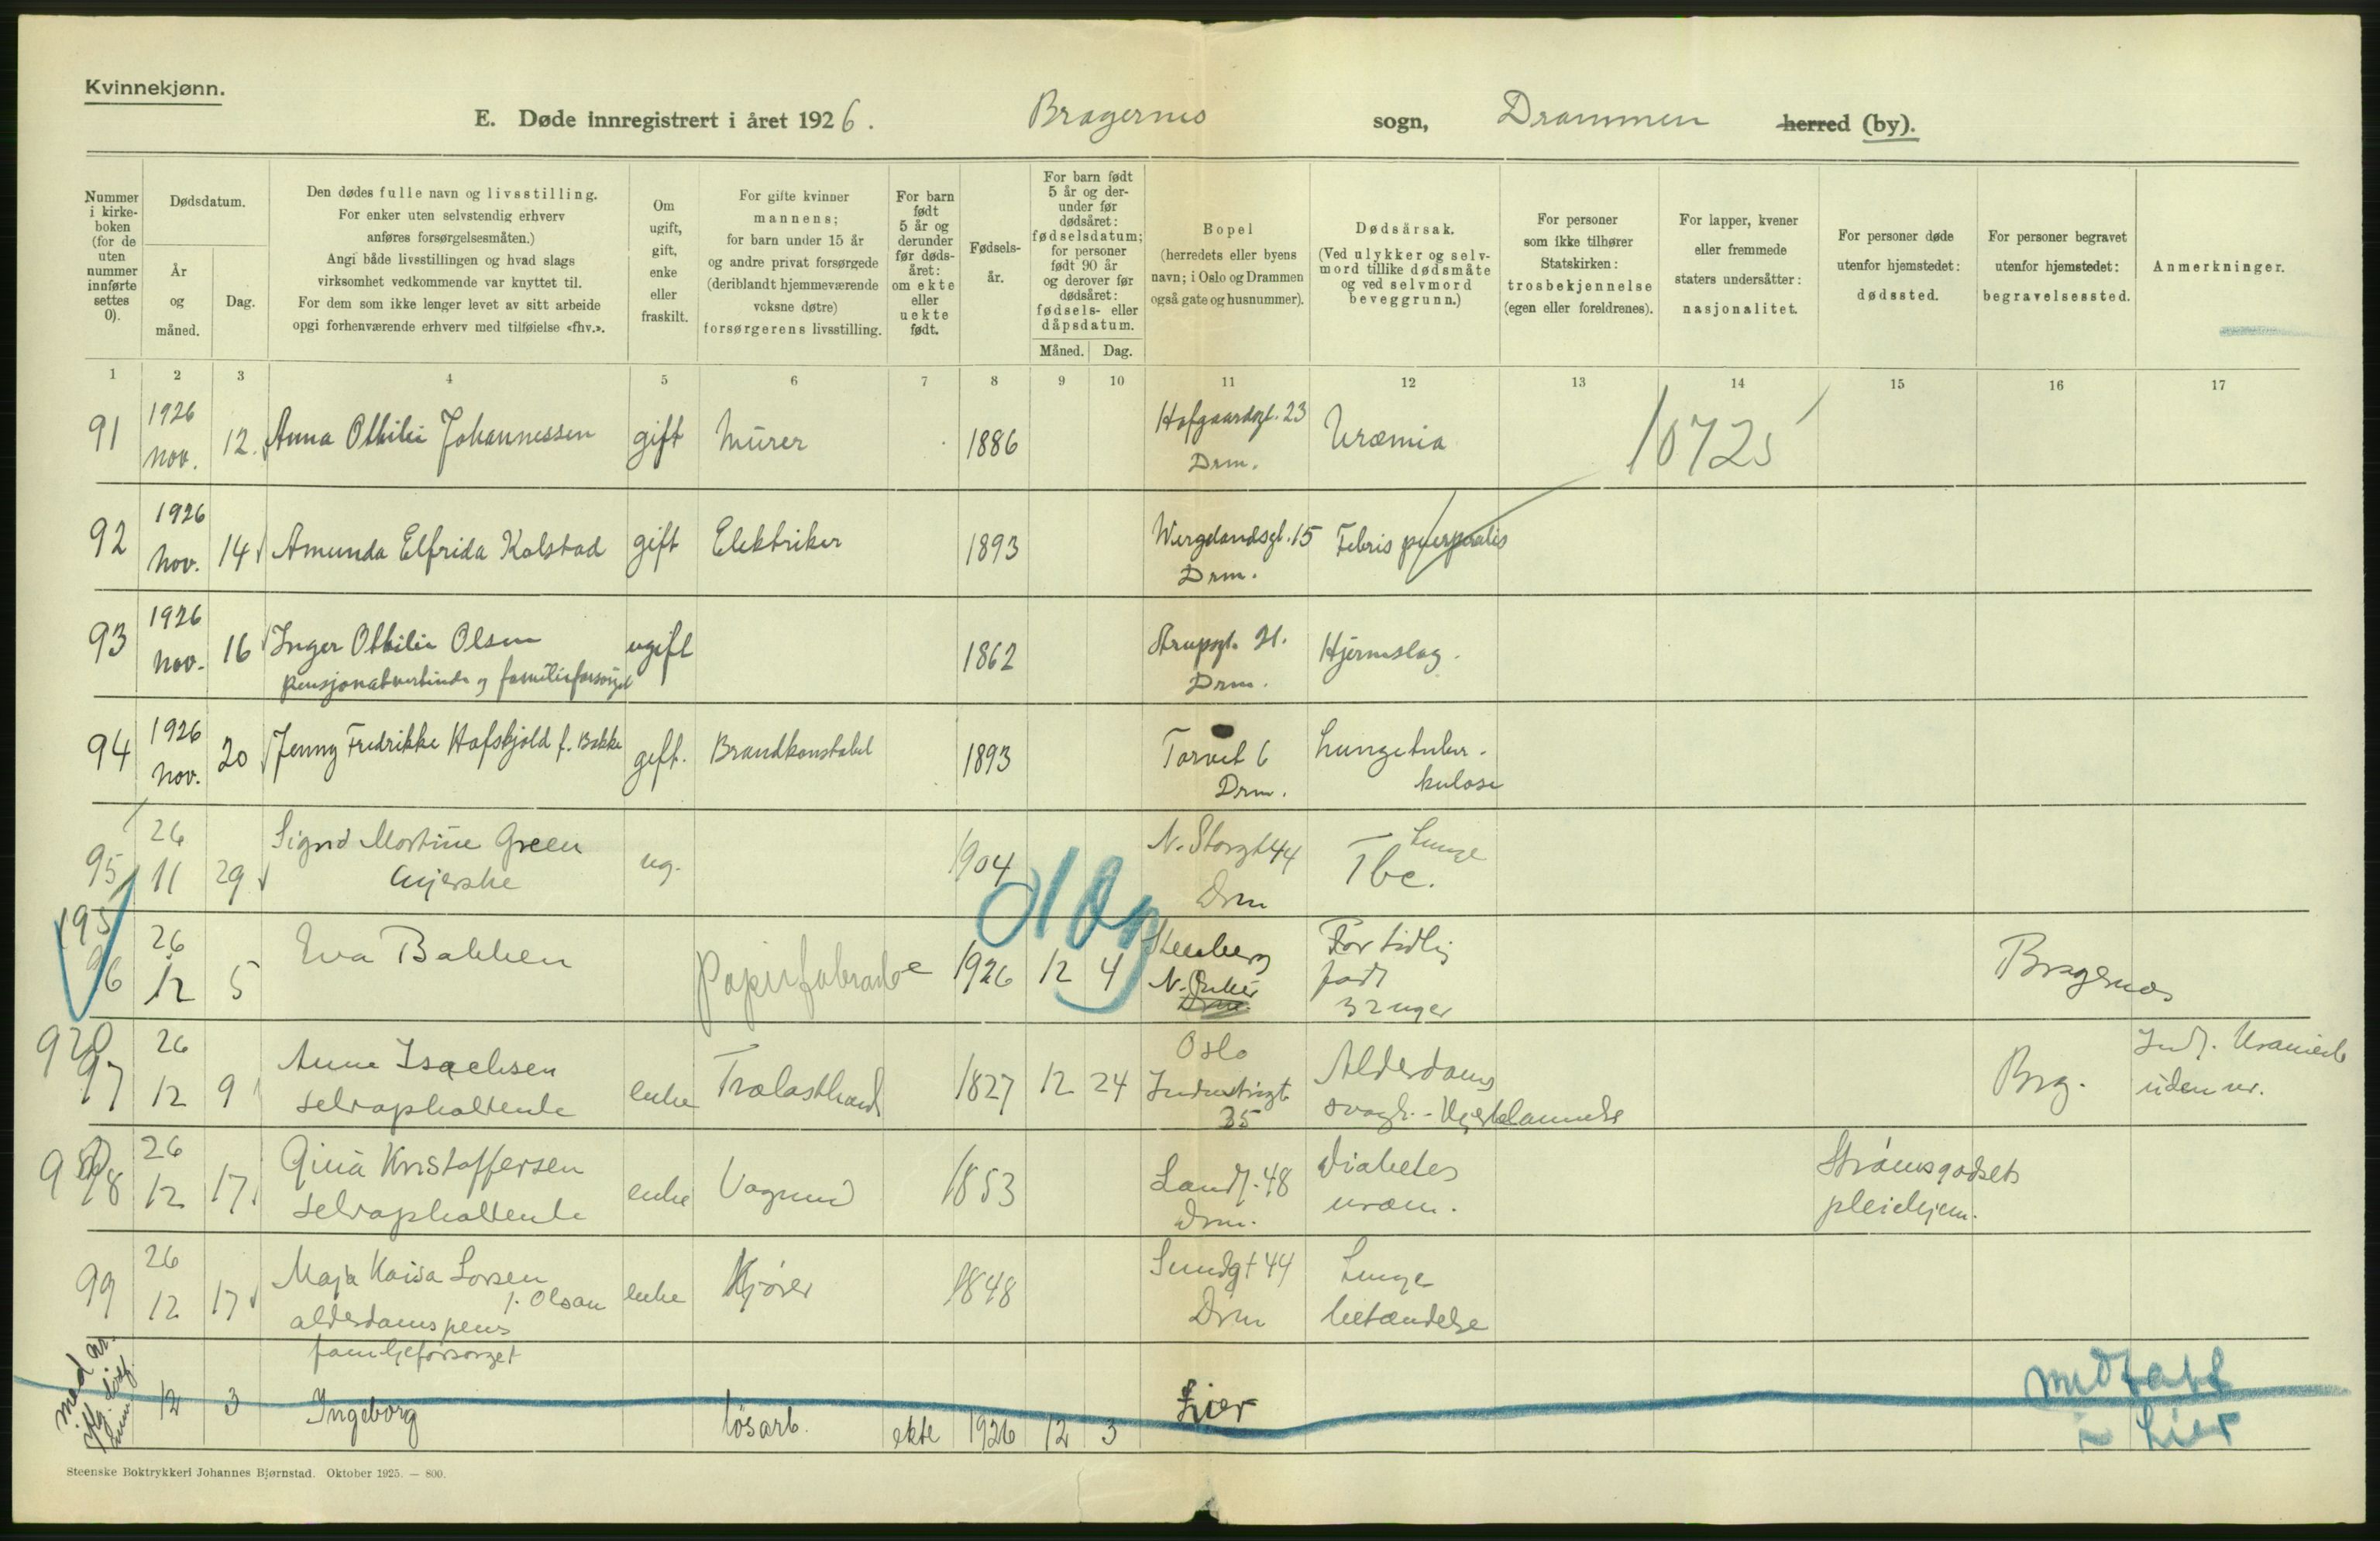 Kvinnekjønn.
E. Døde innregistrert i året 1926. Bragernes sogn, Drammen herred (by).
Nummer i kirkeboken (for de uten nummer innførte settes 0).
Dødsdatum.
År og måned.
Dag.
Den dødes fulle navn og livsstilling.
For enker uten selvstendig erhverv
anføres forsørgelsesmåten.)
Angi både livsstillingen og hvad slags
virksomhet vedkommende var knyttet til.
For dem som ikke lenger levet av sitt arbeide
opgi forhenværende erhverv med tilføielse «fhv.».
Om ugift, gift, enke eller fraskilt.
For gifte kvinner
mannens;
for barn under 15 år
og andre privat forsørgede
(deriblandt hjemmeværende
voksne døtre)
forsørgerens livsstilling.
For barn født 5 år og derunder før dødsåret: om ekte eller uekte født.
Fødselsår.
For barn født 5 år og derunder før dødsåret: fødselsdatum; for personer født 90 år og derover før dødsåret: fødsels- eller dåpsdatum.
Måned. Dag.
Bopel
(herredets eller byens
navn; i Oslo og Drammen
også gate og husnummer).
Dødsårsak.
(Ved ulykker og selvmord tillike dødsmåte og ved selvmord beveggrunn.)
For personer
som ikke tilhører
Statskirken:
trosbekjennelse
(egen eller foreldrenes).
For lapper, kvener
eller fremmede
staters undersåtter:
nasjonalitet.
For personer døde
utenfor hjemstedet:
dødssted.
For personer begravet
utenfor hjemstedet:
begravelsessted.
Anmerkninger.
1 2 3 4 5 6 7 8 9 10 11 12 13 14 15 16 17
91 1926 nov. 12. Anna Othilie Johannessen gift Murer 1886 Hofgaardsgt. 23 Drm. Uræmia 10725
92 1926 Nov. 14 Amunda Elfrida Kolstad gift Elektriker 1893 Wergelandsgt. 15 Drm. Febris puerperalis
93 1926 Nov. 16 Inger Othilie Olsen ugift 1862 Strupsgt. 21. Drm. Hjerneslag.
94 1926 Nov. 20 Jenny Fredrikke Hafskjold f. Bakke gift. Brandkonstabel 1893 Torvet 6 Drm. Lungetuberkulose
95 26 11 29 Sigrid Mortine Green ug. 1904 N. Storgt 44 Drm Lunge Tbc.
195
96 26 12 5 Eva Bakken Papirfabrarb 1926 12 4 Stenberg N. Eiker Drm. For tidlig født 32 uger Bragernes
920
97 26 12 9 Anne Isachsen selvopholdende enke Trælasthand 1827 12 24 Oslo Industrigt 35 Alderdoms svagh. - Hjertelammelse Brg. uden nr.
98 26 12 17 Gina Kristoffersen selvopholdende enke Vognmd 1853 Landf. 48 Drm. Diabetes uræm. Strømsgodsets pleiehjem.
99 26 12 17 Maja Kaisa Larsen f. Olsen alderdomspens familjeforsørget enke Kjører 1848 Sundgt 44 Drm Lunge betændelse
12 3 Ingeborg løsarb. ekte 1926 12 3 Lier medtatt i Lier
Steenske Boktrykkeri Johannes Bjørnstad. Oktober 1925. — 800.